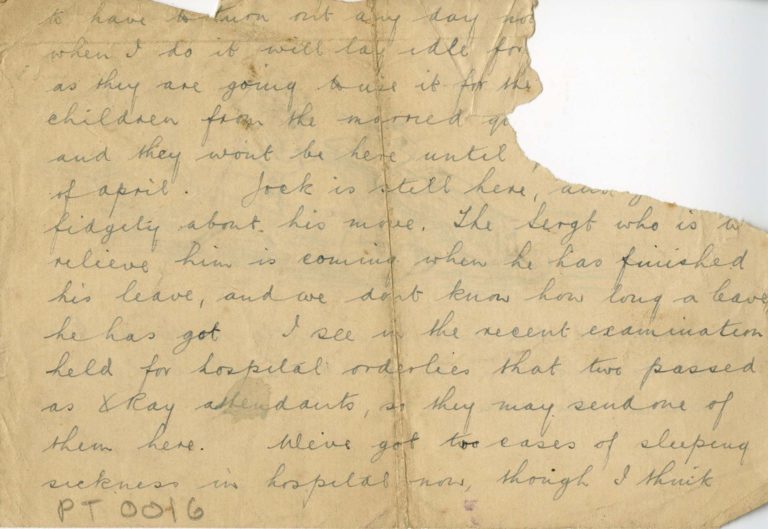 to have to turn out any day now
when I do it will lay idle for
as they are going to use it for the
children from the married
and they wont be here until
of april. Jock is still here, and
fidgity about his move. The Sergt who is
relieve him is coming when he has finished
his leave, and we dont know how long a leave
he has got I see in the recent examination
held for hospital orderlies that two passed
as XRay attendants, so they may send one of
them here. We've got two cases of sleeping
sickness in hospital now, though I think
PT 0016